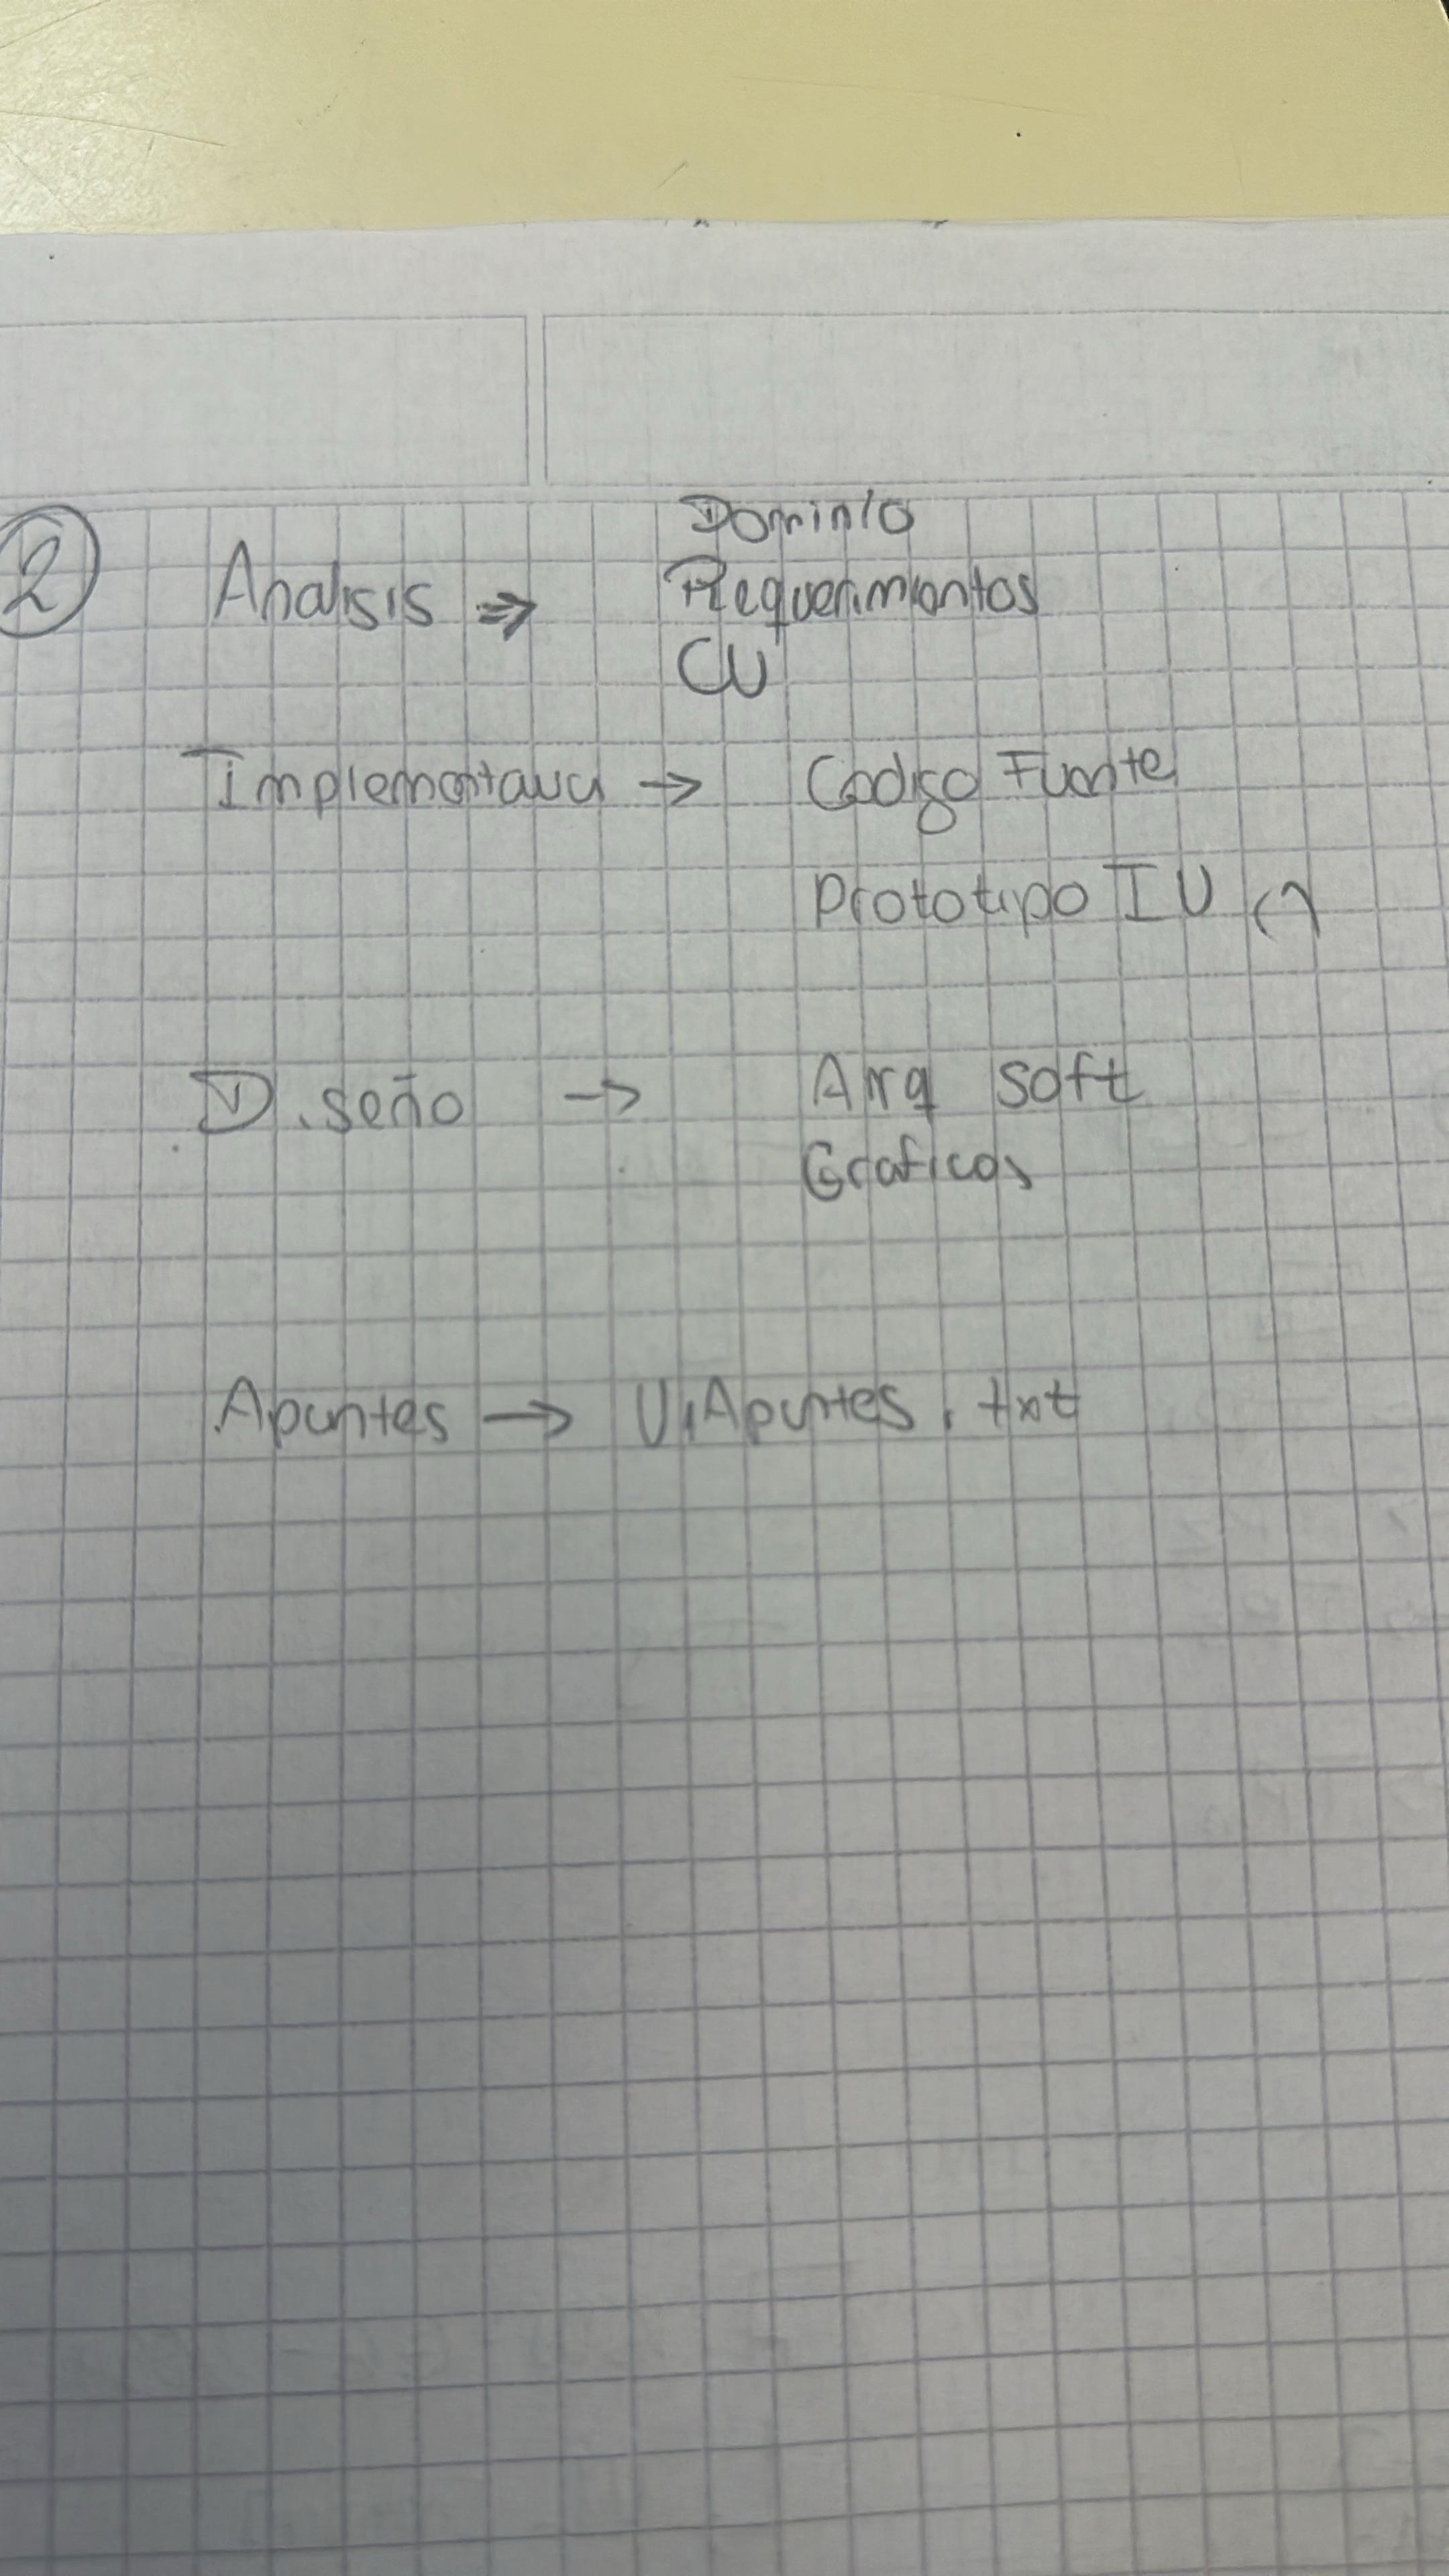 2 Analisis ⇒ Dominio
Requerimientos
CU
Implementacu → Codigo Fuente
Prototipo IU ( )
Diseño → Arq soft
Graficos
Apuntes → U1Apuntes.txt